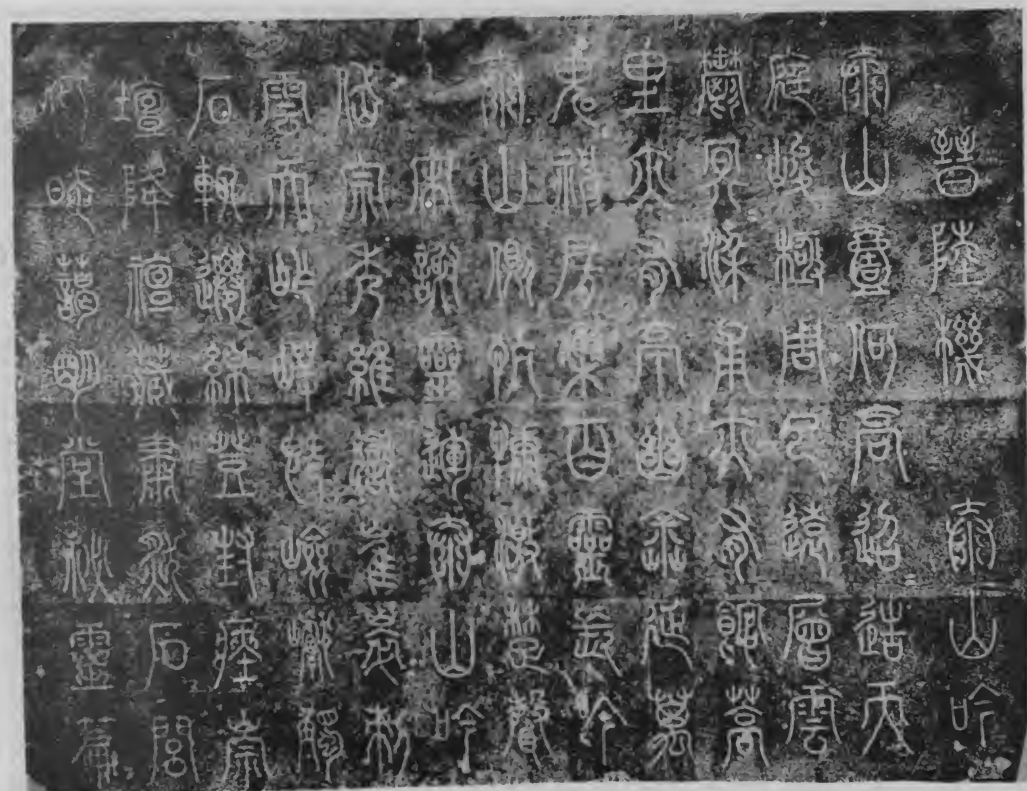 晉陸機　泰山吟
泰山壹何高迢〻造天
庭峻極周已遠層雲
鬱冥〻梁甫亦有館蒿
里亦有亭幽塗延萬
鬼神房集百靈長吟
泰山側忼慨激楚聲
宋謝靈運泰山吟
岱宗秀維嶽崔崒刺
雲天岝崿既嶮巘觸
石輒遷緜登封瘞崇
壇降禪藏肅然石閭
何晻藹明堂秘靈篇